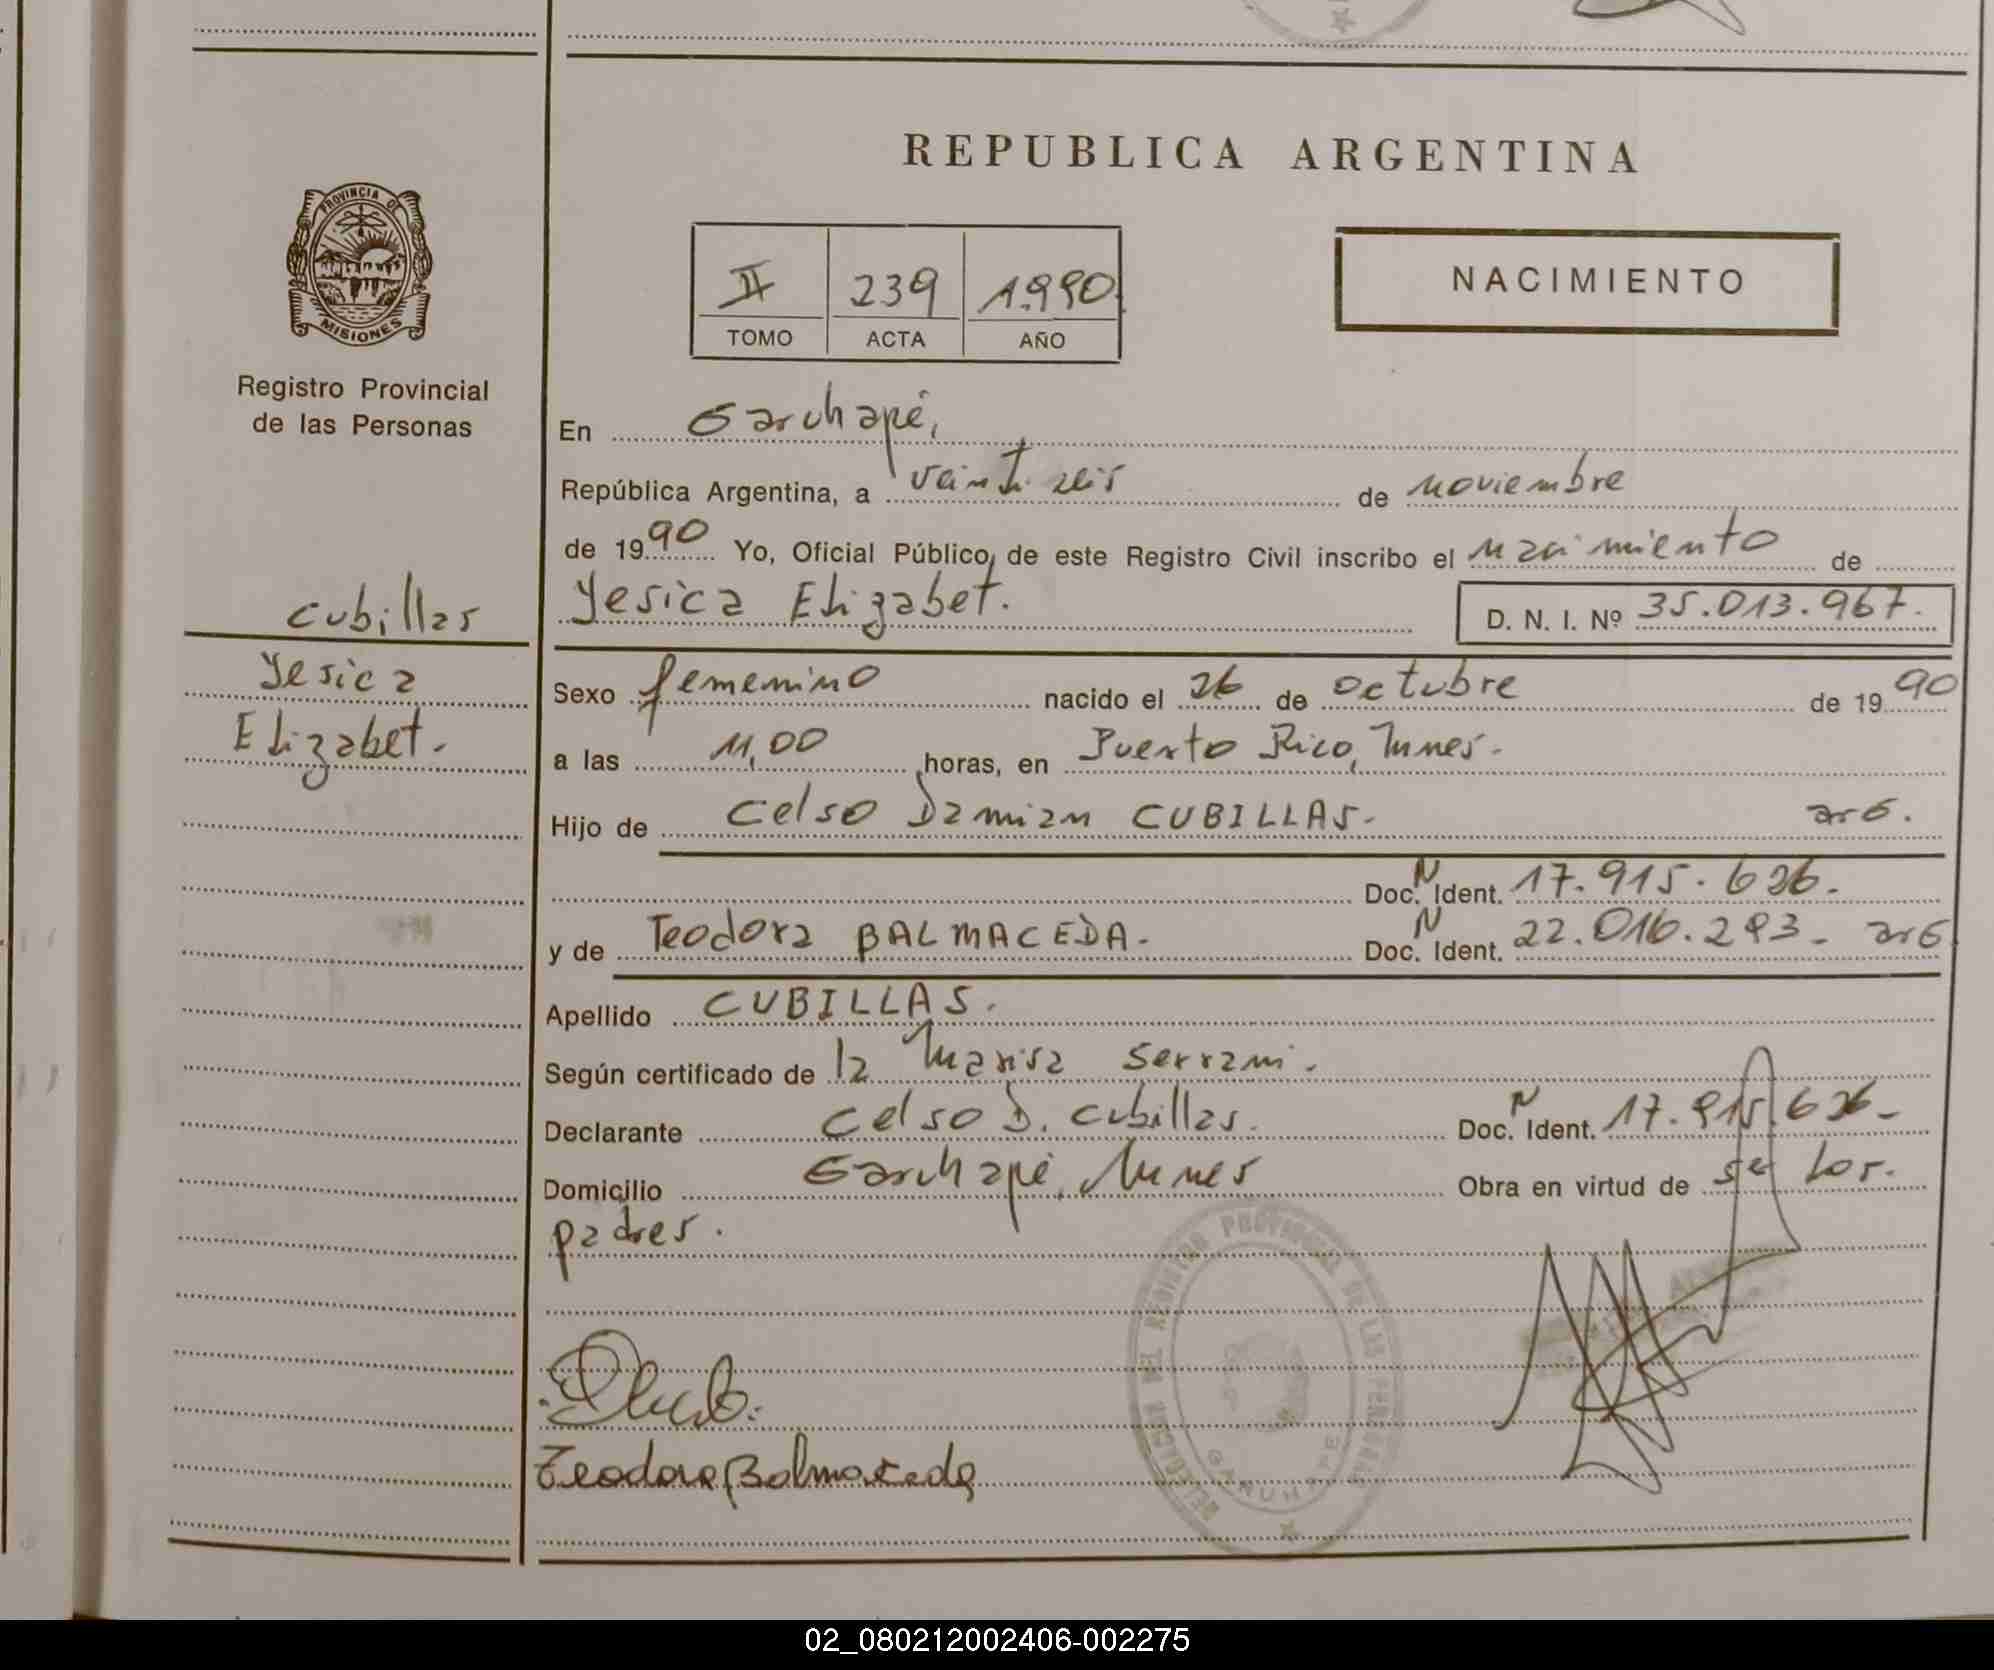 REPUBLICA ARGENTINA
PROVINCIA DE
MISIONES
Registro Provincial
de las Personas
II 239 1.990
TOMO ACTA AÑO
NACIMIENTO
En Garuhapé,
República Argentina, a veintiseis de noviembre
de 1990 Yo, Oficial Público, de este Registro Civil inscribo el nacimiento de
Yesica Elizabet.
D. N. I. Nº 35.013.967.
Cubillas
Yesica
Elizabet.
Sexo femenino nacido el 26 de octubre de 1990
a las 11,00 horas, en Puerto Rico, Mnes.
Hijo de Celso Damian CUBILLAS. arg.
Doc. N Ident. 17.915.626.
y de Teodora BALMACEDA. Doc. N Ident. 22.016.293. arg
Apellido CUBILLAS.
Según certificado de la Marisa Serrani.
Declarante Celso D. Cubillas. Doc. N Ident. 17.915.626-
Domicilio Garuhapé, Mnes Obra en virtud de ser los.
padres.
DELEGACION DEL REGISTRO PROVINCIAL DE LAS PERSONAS
GARUHAPE
Teodora Balmaceda
02_080212002406-002275